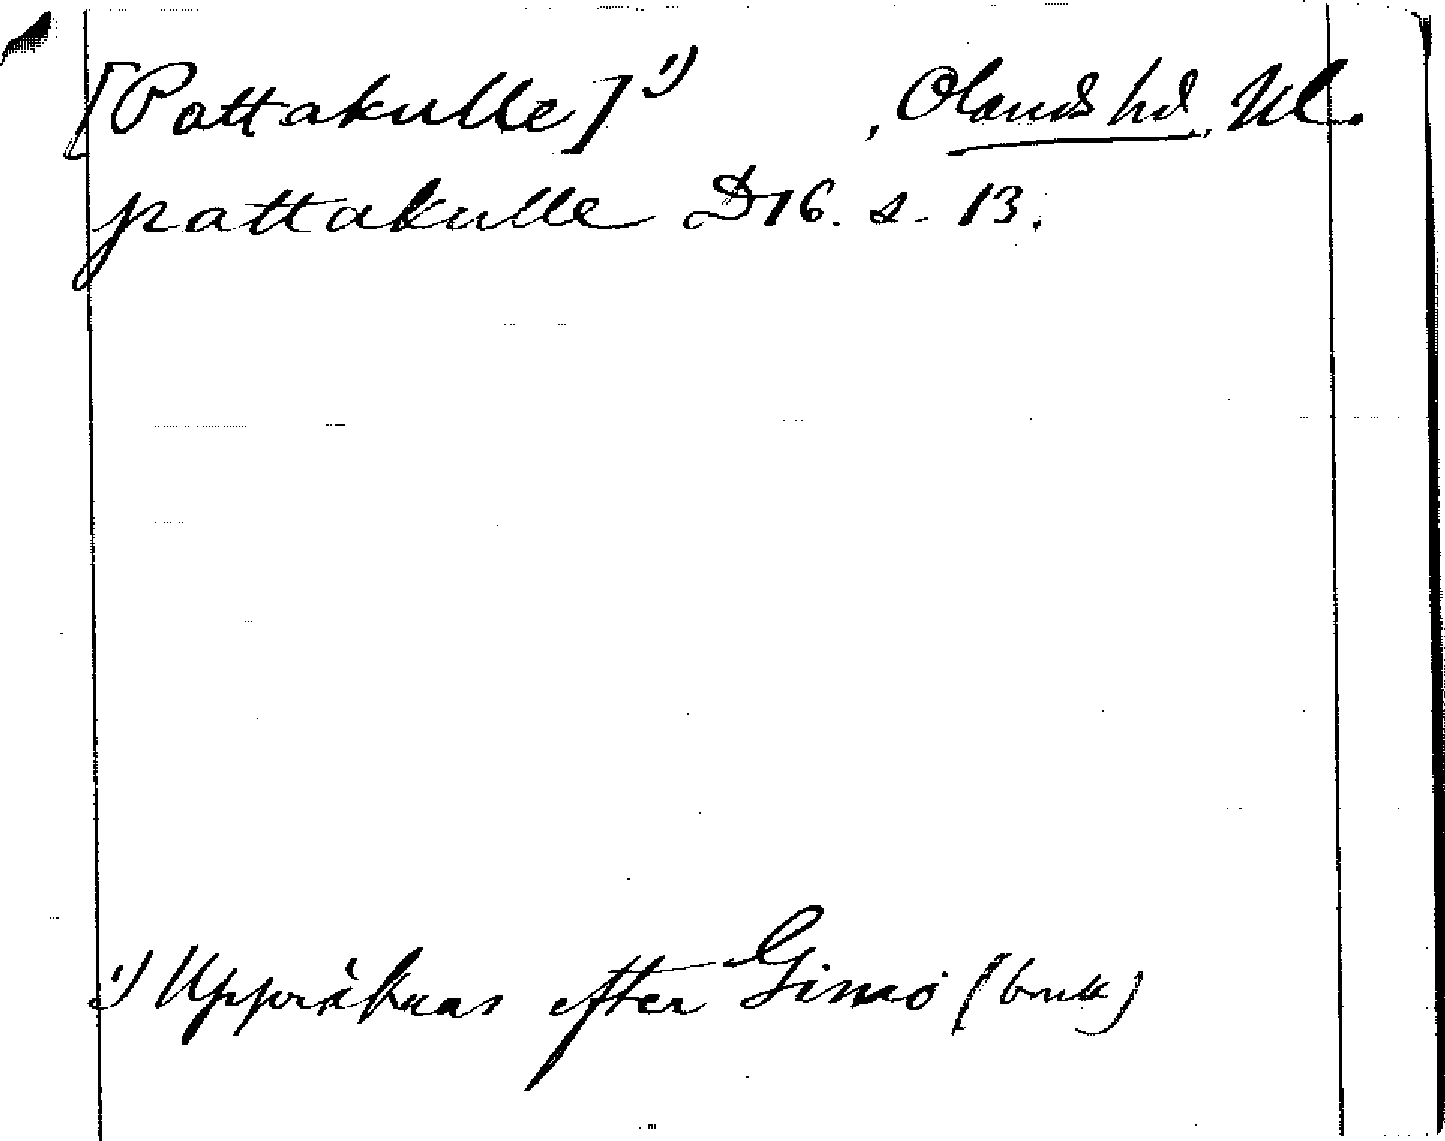 [Pattakulle] 1) , Olands hd, Ul.
pattakulle D16. s. 13.
1) Uppräknas efter Gimo (bruk)